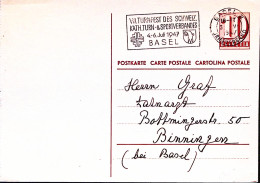 VII.TURNFEST DES SCHWEIZ.
KATH.TURN-&SPORTVERBANDES
4-6.Juli 1947
BASEL
BASEL
1947
HELVETIA
POSTKARTE CARTE POSTALE CARTOLINA POSTALE
Herrn Graf
Zahnarzt
Bottmingerstr. 50
Binningen
(bei Basel)